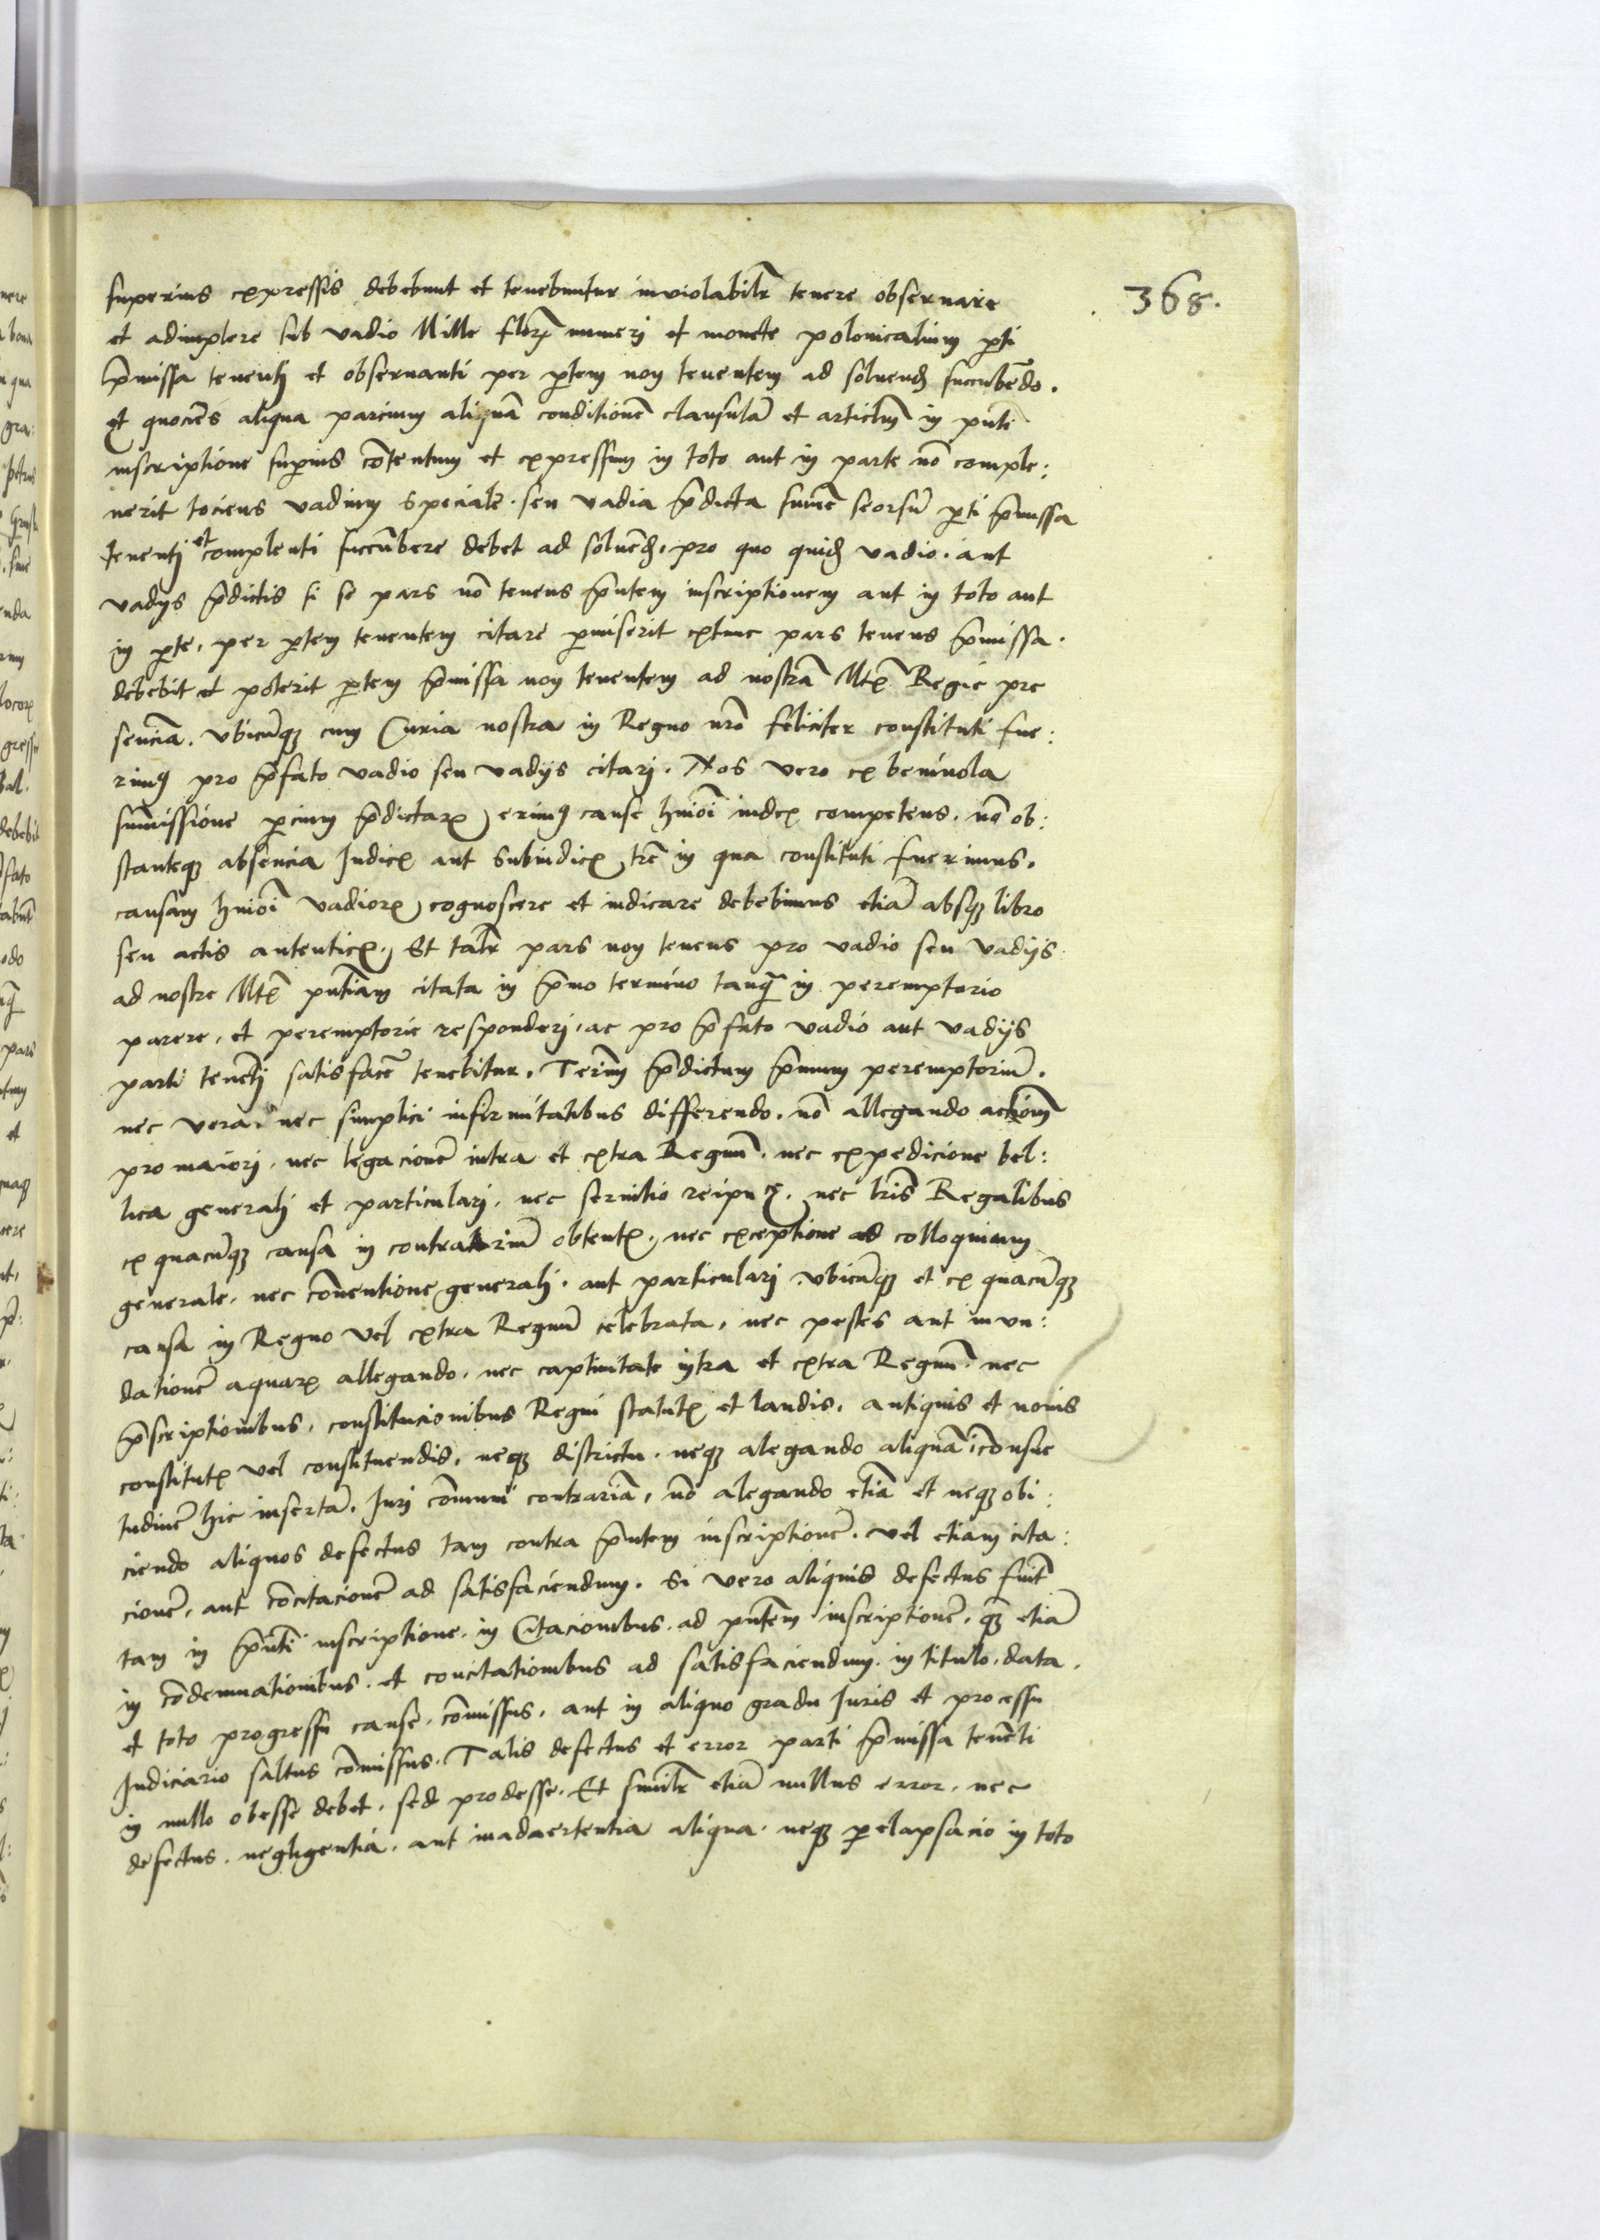 368.
superius expressis debebunt et tenebuntur inviolabilr tenere observare
et adimplere sub vadio Mille florꝝ numeri et monete polonicalium pti
pmissa tenenti et observanti per ptem non tenentem ad solvendꝫ succubendo.
et quociens aliqua parcium aliquā conditionē clausulā et articlm in pnti
inscriptione supius cōtentum et expressum in toto aut in parte nō comple:
verit tociens vadium speciale. seu vadia pdicta sumē seorsū pti pmissa
tenenti et complenti succūbere debet ad solvēdꝫ, pro quo quidꝫ vadio. aut
vadys pdictis si se pars nō tenens pntem inscriptionem aut in toto aut
in pte, per ptem tenentem citare pmiserit extunc pars tenens pmissa.
debebit et poterit ptem pmissa non tenentem ad nostrā Mtꝭ Regie pre
senciā. ubicūqꝫ cum Curia nostra in Regno nro feliciter constituti fue:
rimꝰ pro pfato vadio seu vadys citari. Nos vero ex benivola
summissione pcium pdictarꝝ erimꝰ cause hmoi iudex competens, nō ob:
stanteqꝫ absencia Judicꝭ aut subiudicꝭ tre in qua constituti fuerimus.
causam hmoi vadiorꝝ cognoscere et iudicare debebimus etiā absqꝫ libro
seu actis autenticꝭ. Et talr pars non tenens pro vadio seu vadys
ad nostre Mtꝭ pntiam citata in pmo termino tanqꝫ in peremptorio
parere, et peremptorie responderi, ac pro pfato vadio aut vadys
parti tenēti satisfacē tenebitur. Termī pdictum pmum peremptoriū.
nec vera. nec simplici infirmitatibus differendo. nō allegando actiōm
pro maiori, nec legacionē intra et extra Regnū. nec expedicione bel:
lica generali et particulari, nec servitio reipuce. nec lris Regalibus
ex quacūqꝫ causa in contrariū obtentꝭ. nec exceptione ad colloquium
generale. nec cōventione generali. aut particulari. ubicūqꝫ et ex quacūqꝫ
causa in Regno vel extra Regnū celebrata, nec pestes aut inun:
dationē aquarꝝ allegando, nec captivitate intra et extra Regnū. nec
pscriptionibus, constitucionibus Regni statutꝭ et laudis, antiquis et novis
constitutꝭ vel constituendis, neqꝫ districtu. neqꝫ alegando aliquā cōsue
tudinē hic insertā. Juri cōmuni contrariā, nō alegando etiā et neqꝫ obi:
ciendo aliquos defectus tam contra pntem inscriptionē. vel etiam cita:
cionē, aut cōcitacionē ad satisfaciendum. Si vero aliquis defectus fuit
tam in pnti inscriptione. in Citacionibus. ad pntem inscriptionē. qꝫ etiā
in cōdemnationibus. et concitationibus ad satisfaciendum. in titulo. data.
et toto progressu cause. cōmissus, aut in aliquo gradu Juris et processu
Judiciario saltus cōmissus. Talis defectus et error parti pmissa tenēti
in nullo obesse debet. sed prodesse. Et similr etiā nullus error. nec
defectus. negligentia. aut inadvertentia aliqua. neqꝫ pelapsacio in toto